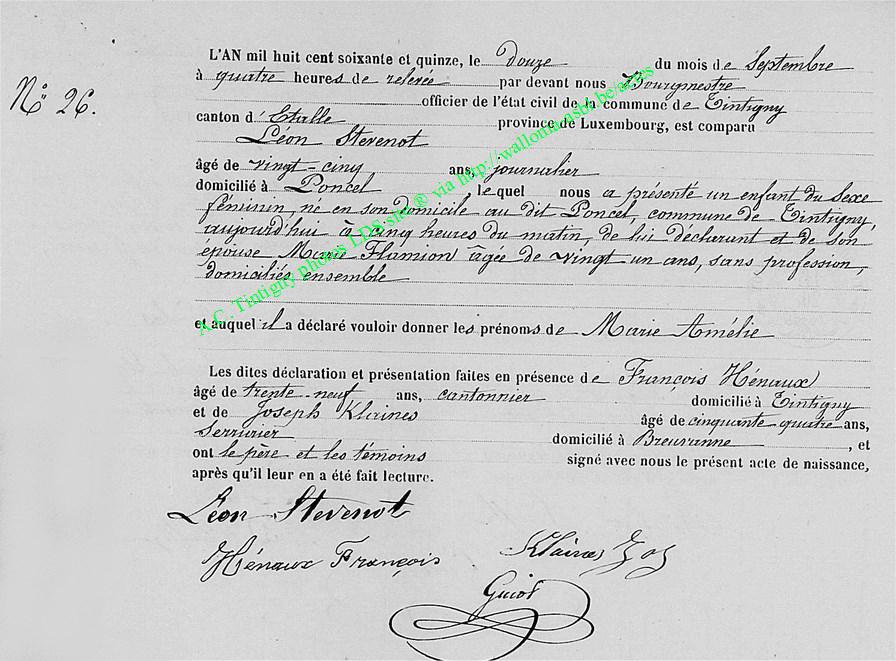 N° 26.
L'AN mil huit cent soixante et quinze, le douze du mois de Septembre
à quatre heures de relevée par devant nous Bourgmestre
officier de l'état civil de la commune de Tintigny
canton d'Etalle province de Luxembourg, est comparu
Léon Stevenot
âgé de vingt-cinq ans, journalier
domicilié à Poncel lequel nous a présenté un enfant du Sexe
féminin, né en son domicile au dit Poncel, commune de Tintigny,
aujourd'hui à cinq heures du matin, de lui déclarant et de son
épouse Marie Flamion âgée de vingt un ans, sans profession,
domiciliés ensemble
et auquel il a déclaré vouloir donner les prénoms de Marie Amélie
Les dites déclaration et présentation faites en présence de François Hénaux
âgé de trente-neuf ans, cantonnier domicilié à Tintigny
et de Joseph Klaines âgé de cinquante quatre ans,
Serrurier domicilié à Breuvanne, et
ont le père et les témoins signé avec nous le présent acte de naissance,
après qu'il leur en a été fait lecture.
Léon Stevenot
Hénaux François Klaines Jos
Guiot
A.C. Tintigny photos LDS site® via http://wallonia.asbl.be/actes